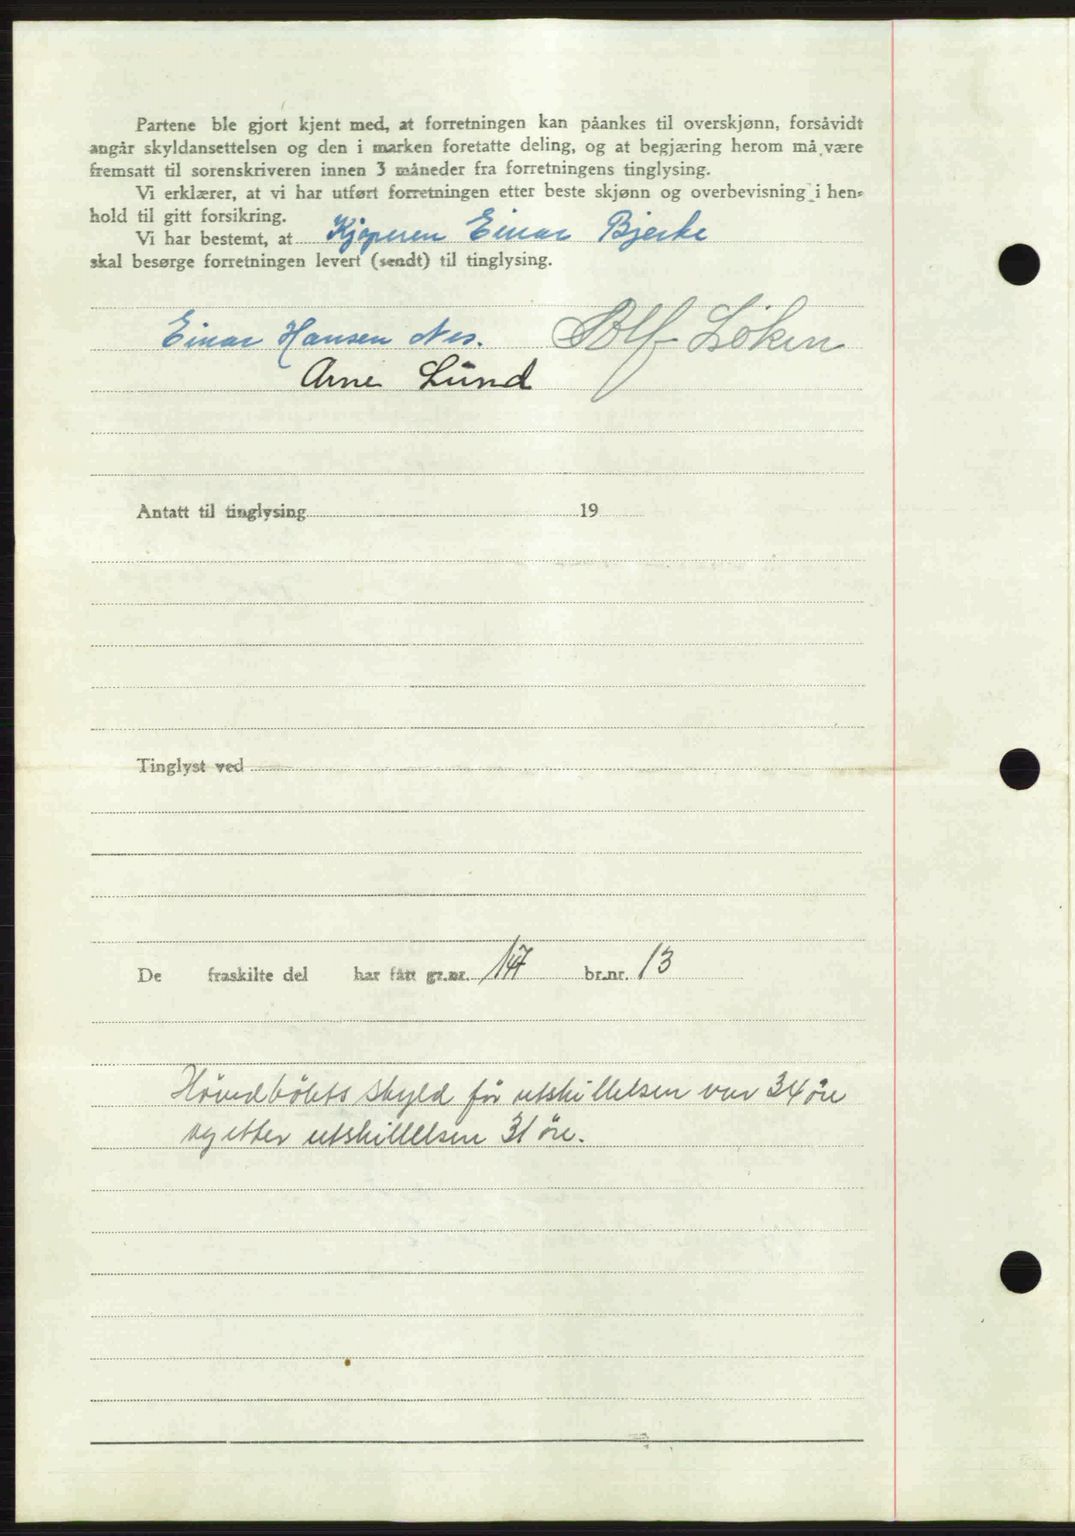 Partene ble gjort kjent med, at forretningen kan påankes til overskjønn, forsåvidt
angår skyldansettelsen og den i marken foretatte deling, og at begjæring herom må være
fremsatt til sorenskriveren innen 3 måneder fra forretningens tinglysing.
Vi erklærer, at vi har utført forretningen etter beste skjønn og overbevisning i hen-
hold til gitt forsikring.
Vi har bestemt, at Kjøperen Einar Bjerke
skal besørge forretningen levert (sendt) til tinglysing.
Einar Hansen Nes. Rolf Löken
Arne Lund
Antatt til tinglysing 19
Tinglyst ved
De fraskilte del har fått gr.nr. 147 br.nr. 13
Hövedbölets skyld för utskillelsen var 34 öre
og etter utskillelsen 31 öre.